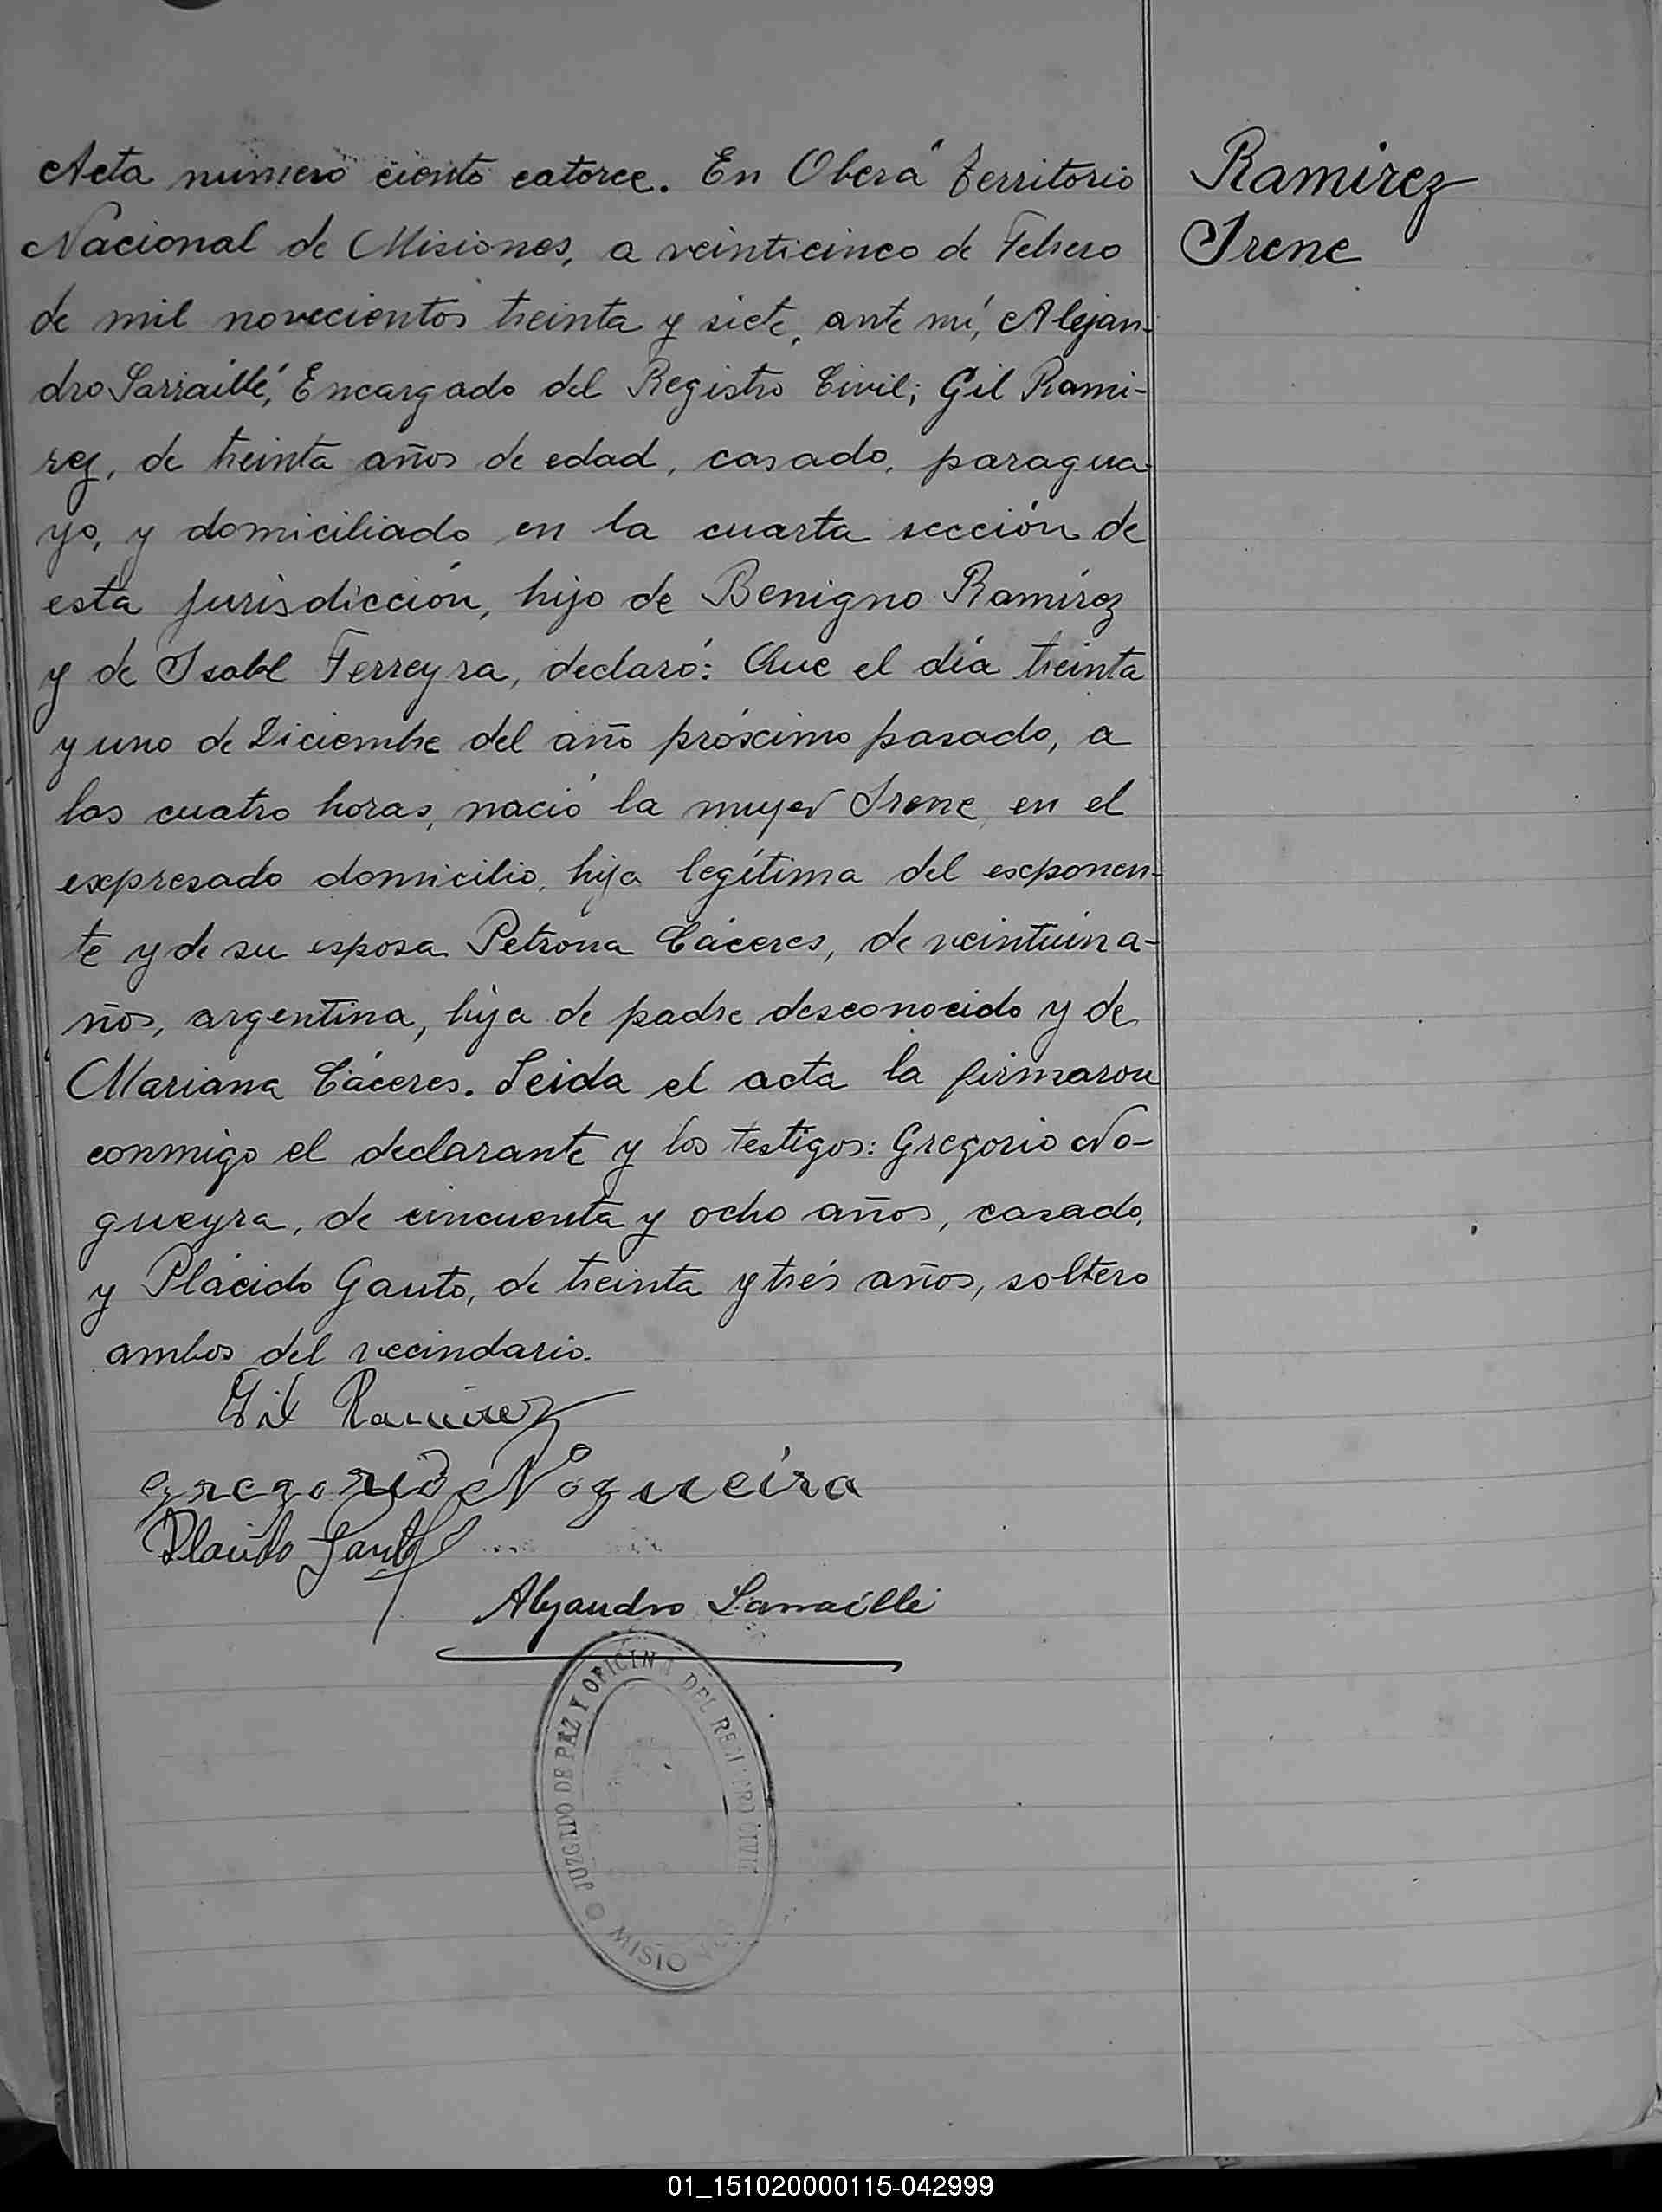 Acta numero ciento catorce. En Oberá Territorio
Nacional de Misiones, a veinticinco de Febrero
de mil novecientos treinta y siete, ante mí, Alejan-
dro Sarraillé, Encargado del Registro Civil; Gil Rami-
rez, de treinta años de edad, casado, paragua-
yo, y domiciliado en la cuarta sección de
esta jurisdicción, hijo de Benigno Ramírez
y de Isabel Ferreyra, declaró: Que el día treinta
y uno de Diciembre del año próximo pasado, a
las cuatro horas, nació la mujer Irene, en el
expresado domicilio, hija legítima del exponen-
te y de su esposa Petrona Cáceres, de veintiún a-
ños, argentina, hija de padre desconocido y de
Mariana Cáceres. Leida el acta la firmaron
conmigo el declarante y los testigos: Gregorio No-
gueyra, de cincuenta y ocho años, casado,
y Plácido Gauto, de treinta y trés años, soltero
ambos del vecindario.
Gil Ramirez
Gregorio Nogueira
Placido Gauto
Alejandro Sarraillé
JUZGADO DE PAZ Y OFICINA DEL REGISTRO CIVIL
MISIONES
Ramirez
Irene
01_151020000115-042999